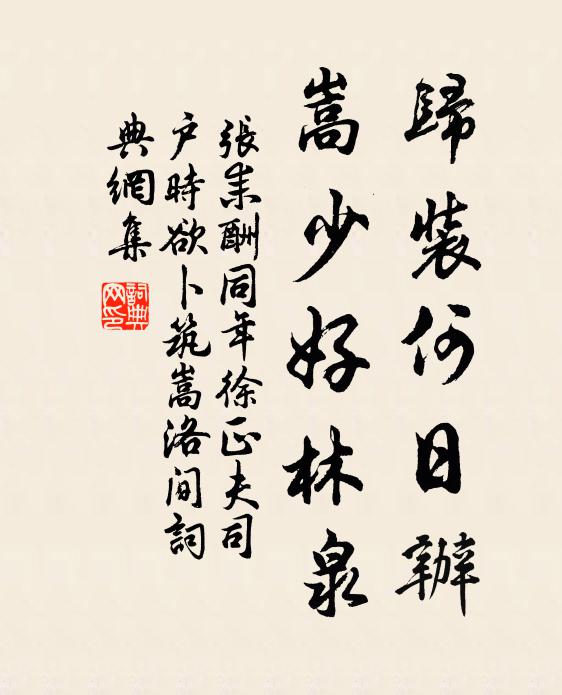 歸裝何日辦
嵩少好林泉
張耒酬同年徐正夫司
户時欲卜筑嵩洛間詞
典網集
詞典网印